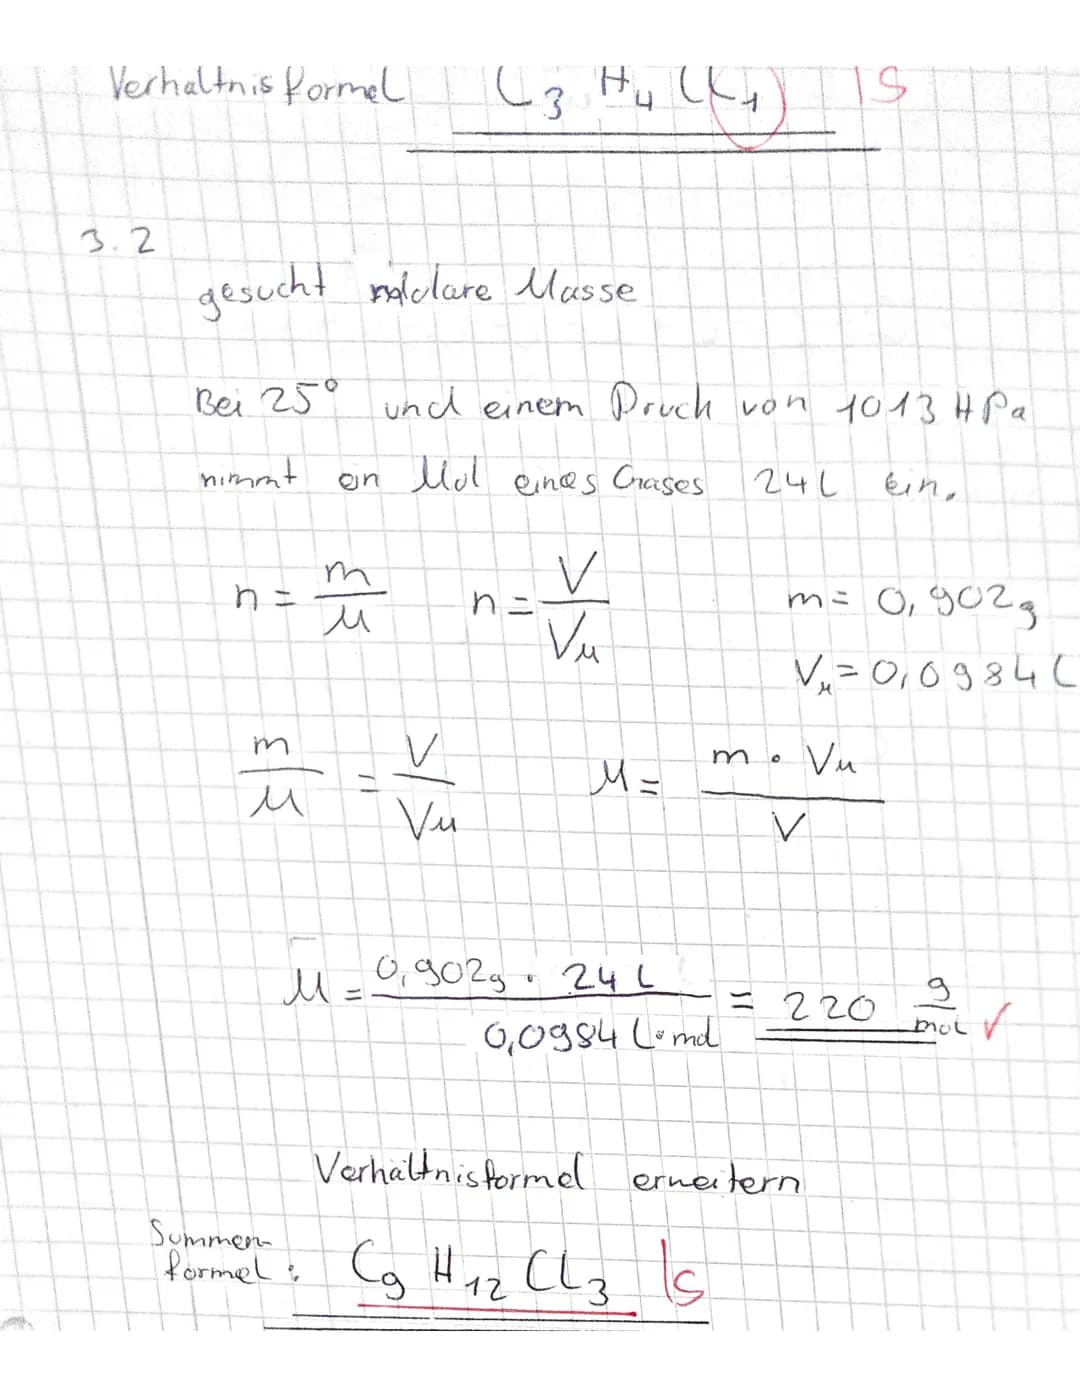 Verhältnisformel C3 H4 Cl1 |S
3.2
gesucht molare Masse
Bei 25° und einem Druck von 1013 HPa
nimmt ein Mol eines Gases 24L ein.
n = m/M n = V/VM m = 0,902g
VM = 0,0984 L
m/M = V/VM M = m · VM / V
M = 0,902g · 24 L / 0,0984 L·mol = 220 g/mol ✓
Verhältnisformel erweitern
Summen-
formel: C9 H12 Cl3 |S